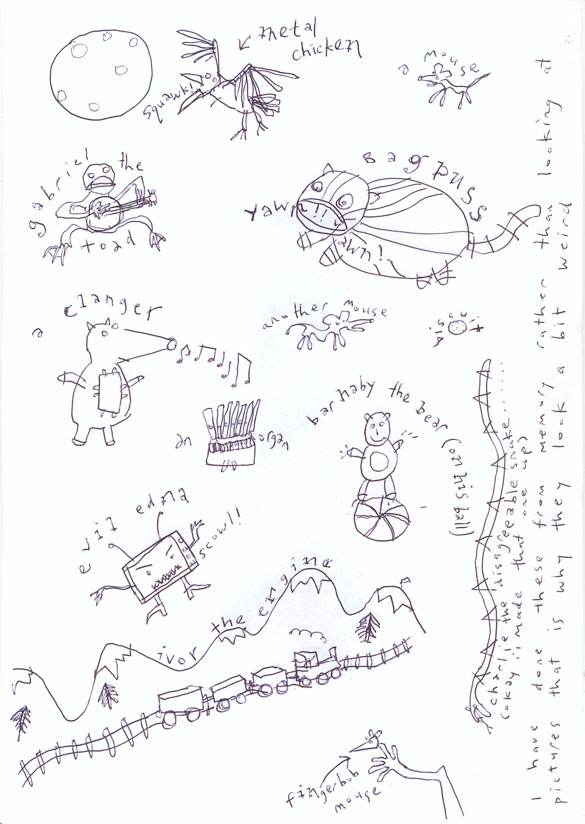 metal
chicken
squawk!
a mouse
gabriel the
toad
Bagpuss
yawn!!
awn!
a clanger
another mouse
an organ
barnaby the bear (on his ball)
evil edna
scowl!!
ivor the engine
charlie the disagreeable snake......
(okay i made that one up)
fingerbob
mouse
I have done these from memory rather than looking at
pictures that is why they look a bit weird